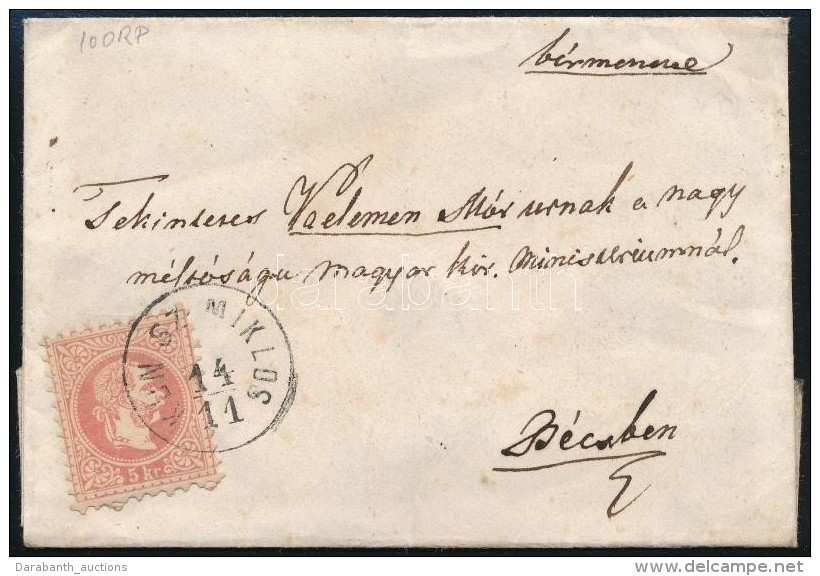 100RP
bérmentve
Tekintetes Kelemen Mór urnak a nagy
méltóságu magyar kir. Ministeriumnál.
darabanth
KUN ST MIKLOS
14
11
5 kr.
Bécsben
Darabanth_auctions
delcampe.net